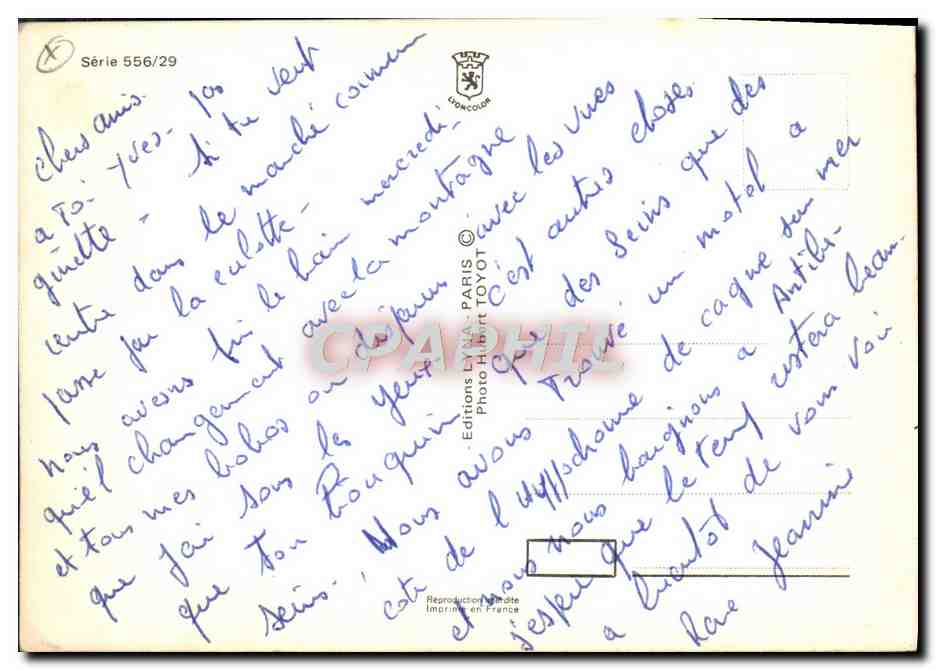 Série 556/29
LYONCOLOR
chers amis.
a toi yves - pas
ginette - si tu veut
rentre dans le marché comme
passe par la culotte -
nous avons pris le bain mercredi -
quel changement avec la montagne
et tous mes bobos on disparus avec les vues
que j'ai sous les yeux c'est autres choses
que ton Bouquin que des seins que des
seins! Nous avons trouvé un motel a
coté de l'hyppodrome de cagne sur mer
et nous nous baignons a Antibes.
j'espere que le temps restera beau.
a bientôt de vous voir
Jeannine
- Editions LYNA - PARIS ©
Photo Hubert TOYOT
CPAPHIL
Reproduction interdite
Imprimé en France